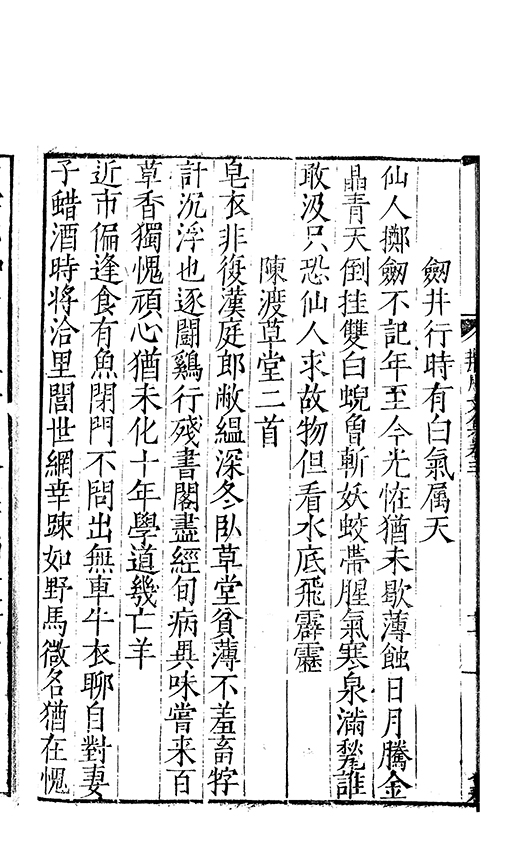 劒井行時有白氣属天
仙人擲劒不記年至今光恠猶未歇薄蝕日月騰金
晶青天倒挂雙白蜺魯斬妖蛟帶腥氣寒泉滿甃誰
敢汲只恐仙人求故物但看水底飛霹靂
陳渡草堂二首
皂衣非復漢庭郎敝緼深冬卧草堂貧薄不羞畜牸
計沉浮也逐鬭鷄行殘書閣盡經旬病異味嘗来百
草香獨愧頑心猶未化十年學道幾亡羊
近市偏逢食有魚閉門不問出無車牛衣聊自對妻
子蜡酒時將洽里閭世網幸踈如野馬微名猶在愧